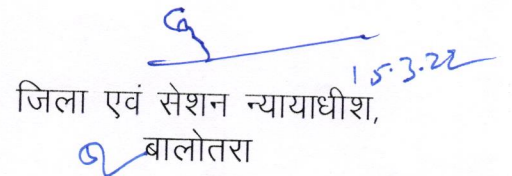 15.3.22
जिला एवं सेशन न्यायाधीश,
बालोतरा